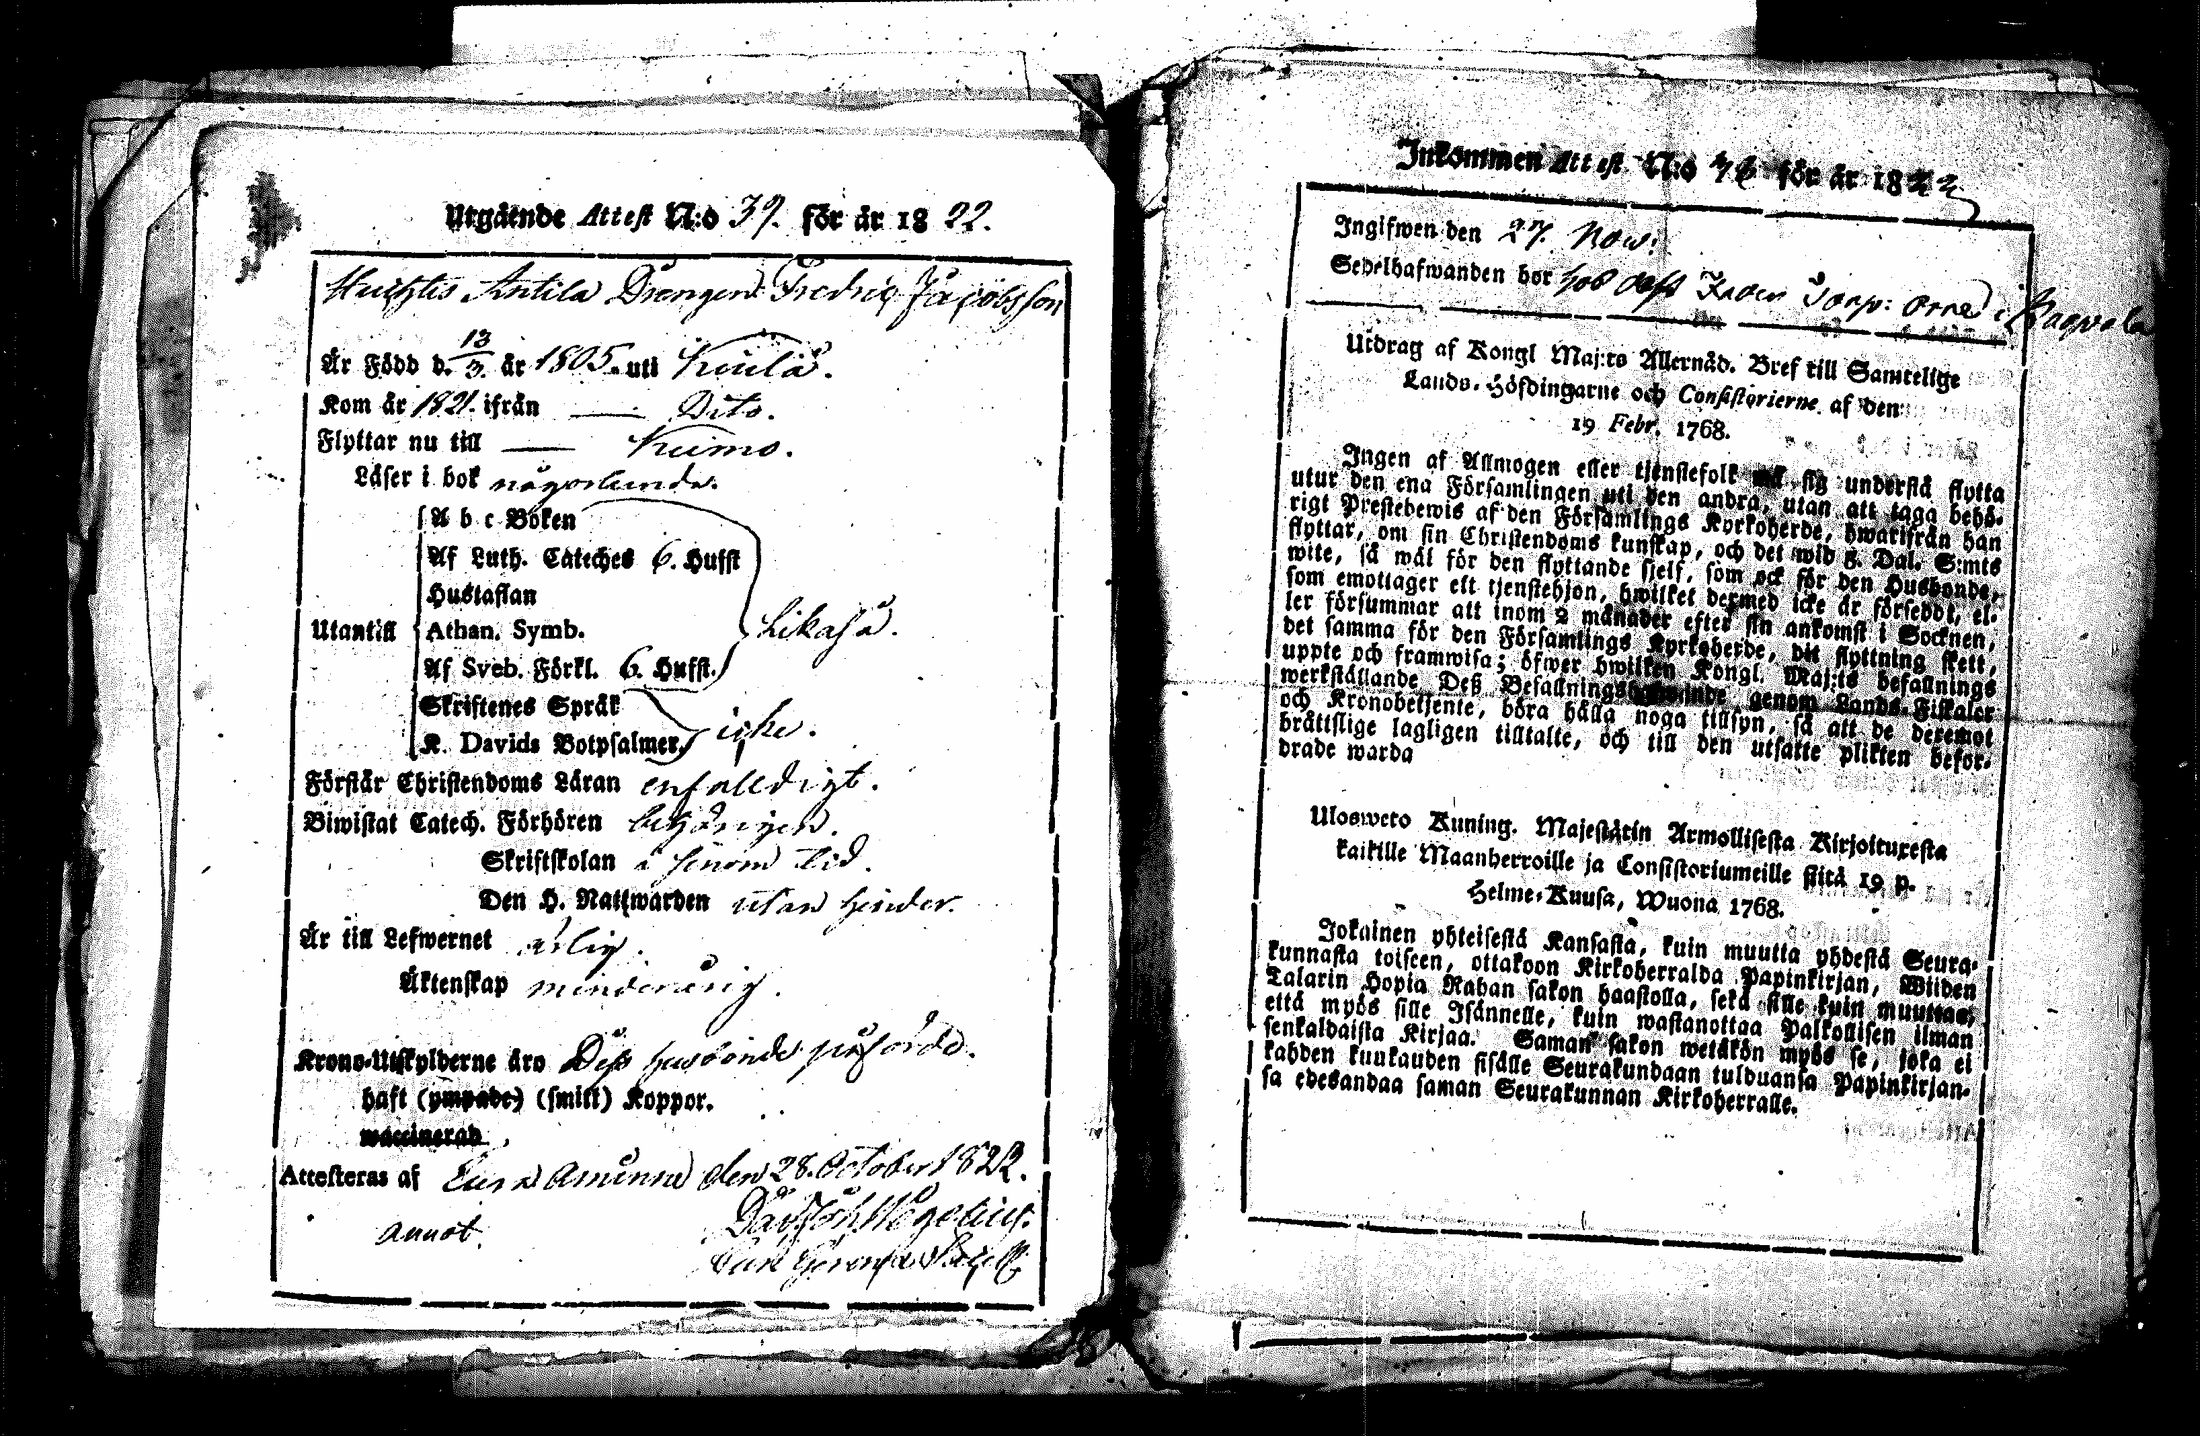 Utgående Attest N:o 39. för år 1822.
Antila Drengen Fredric Jacobsson
Är Född d. 13/3. år 1805. uti Kiula.
Kom år 1821. ifrån — Dito.
Flyttar nu till — Kumo.
Läser i bok någorlunda.
A b c Boken
Af Luth. Cateches 6. Hufst
Hustaflan
Utantill Athan. Symb. likaså.
Af Sveb. Förkl. 6. Hufst.
Skriftenes Språk
K. Davids Botpsalmer icke.
Förstår Christendoms Läran enfalldigt.
Biwistat Catech. Förhören behörigen.
Skriftskolan i sinom tid.
Den H. Nattwarden utan hinder.
Är till Lefwernet ärlig.
Äktenskap minderårig.
Krono-Utskylderne äro Dess husbonde påförde.
haft (ympade) (smitt) Koppor.
waccinerad
Attesteras af Eura Åminne den 28. October 1822.
annot.
Inkommen Attest N:o för år 1822
Ingifwen den 27. Now:
Sedelhafwanden bor hos Torp: i
Utdrag af Kongl Maj:ts Allernåd. Bref till Samtelige
Lands-Höfdingarne och Consistorierne af den
19 Febr. 1768.
Ingen af Allmogen eller tjenstefolk må sig understå flytta
utur den ena Församlingen uti den andra, utan att taga behö-
rigt Prestebewis af den Församlings Kyrkoherde, hwarifrån han
flyttar, om sin Christendoms kunskap, och det wid 5. Dal. S:mts
wite, så wäl för den flyttande sjelf, som ock för den Husbonde,
som emottager ett tjenstehjon, hwilket dermed icke är försedt, el-
ler försummar att inom 2 månader efter sin ankomst i Socknen,
det samma för den Församlings Kyrkoherde, dit flyttning skett,
uppte och framwisa; öfwer hwilken Kongl. Maj:ts befallnings
werkställande Deß Befallningshafwande genom Lands-Fiskaler
och Kronobetjente, böra hålla noga tillsyn, så att de deremot
bråttslige lagligen tilltalte, och till den utsatte plikten befor-
drade warda
Ulosweto Kuning. Majestätin Armollisesta Kirjoituxesta
kaikille Maanherroille ja Consistoriumeille siitä 19 p.
Helme-Kuusa, Wuona 1768.
Jokainen yhteisestä Kansasta, kuin muutta yhdestä Seura-
kunnasta toiseen, ottakoon Kirkoherralda Papinkirjan, Wiiden
Talarin Hopia Rahan sakon haastolla, sekä sille kuin muuttaa,
että myös sille Isännelle, kuin wastanottaa Palkollisen ilman
senkaldaista Kirjaa. Saman sakon wetäkön myös se, joka ei
kahden kuukauden sisälle Seurakundaan tulduansa Papinkirjan-
sa edesandaa saman Seurakunnan Kirkoherralle.